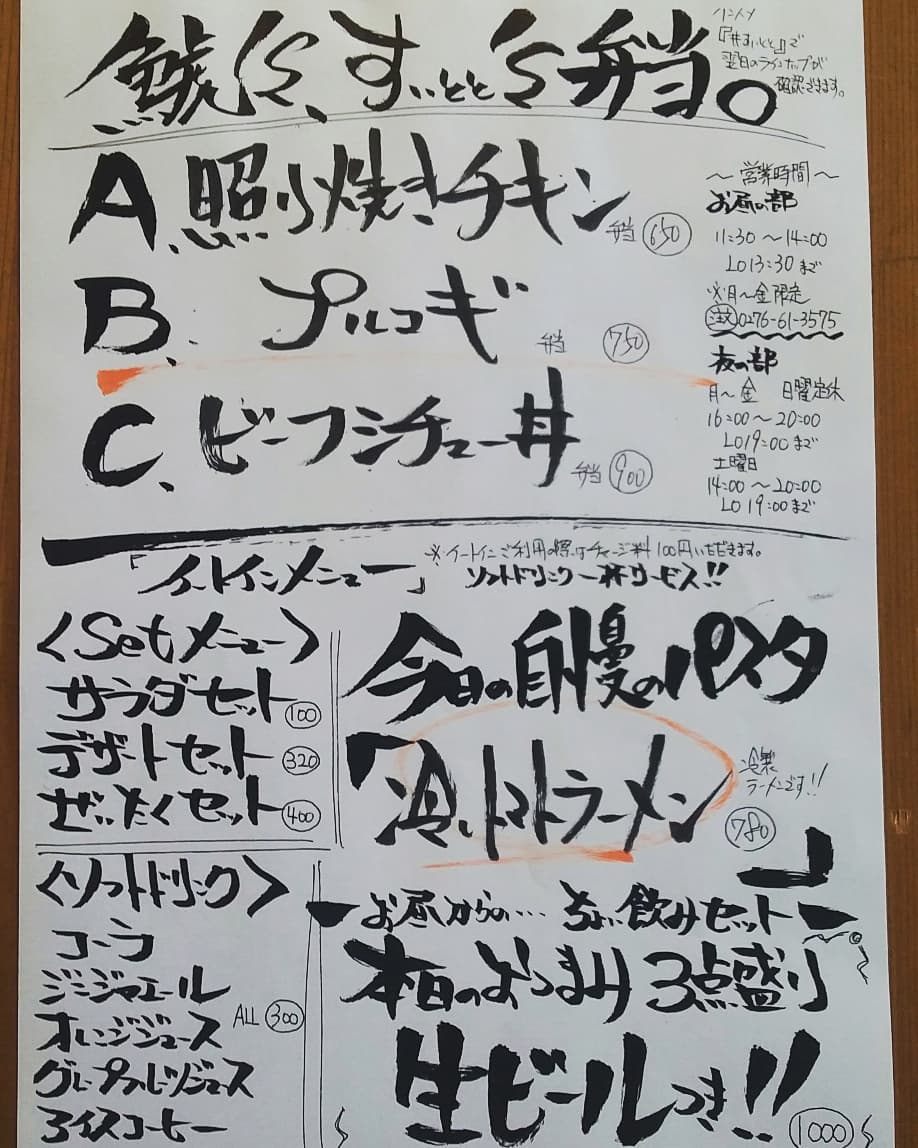 すいとと弁当。
ハンメ
『#すいとと』で
翌日のラインナップが
確認できます。
A、照り焼きチキン
弁当 650
B、プルコギ
弁当 750
C、ビーフシチュー丼
弁当 900
〜営業時間〜
お昼の部
11:30〜14:00
LO13:30まで
※月〜金限定
注文 0276-61-3575
夜の部
月〜金 日曜定休
16:00〜20:00
LO19:00まで
土曜日
14:00〜20:00
LO19:00まで
「イートインメニュー」
※イートインご利用の際はチャージ料100円いただきます。
ソフトドリンク一杯サービス!!
〈Setメニュー〉
サラダセット 100
デザートセット 320
ぜいたくセット 400
〈ソフトドリンク〉
コーラ
ジンジャエール
オレンジジュース
グレープフルーツジュース
アイスコーヒー
ALL 300
今日の自慢のパスタ
「冷、トマトラーメン」
冷製
ラーメンです!!
780
お昼からの…ちょい飲みセット
本日のおつまみ3点盛り
生ビールつき!!
1000